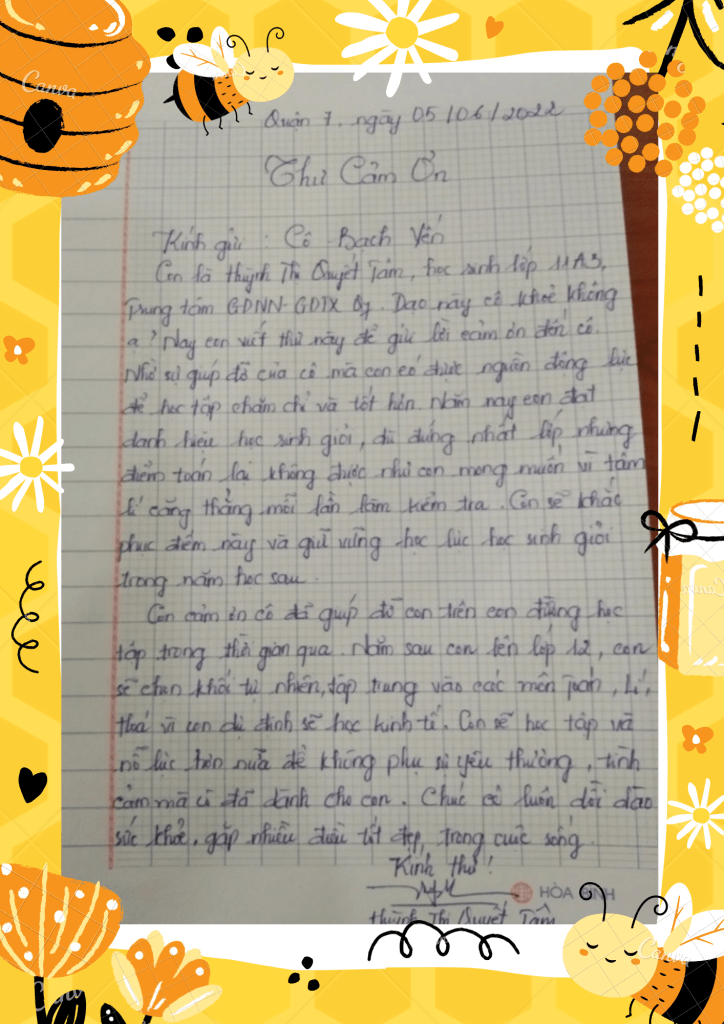 Quận 7, ngày 05/06/2022
Thư Cảm Ơn
Kính gửi : Cô Bạch Yến
Con là Huỳnh Thị Quyết Tâm, học sinh lớp 11A3,
Trung tâm GDNN-GDTX Q7. Dạo này cô khoẻ không
ạ? Nay con viết thư này để gửi lời cảm ơn đến cô.
Nhờ sự giúp đỡ của cô mà con có được nguồn động lực
để học tập chăm chỉ và tốt hơn. Năm nay con đạt
danh hiệu học sinh giỏi, dù đứng nhất lớp nhưng
điểm toán lại không được như con mong muốn vì tâm
lí căng thẳng mỗi lần làm kiểm tra. Con sẽ khắc
phục điểm này và giữ vững học lực học sinh giỏi
trong năm học sau.
Con cảm ơn cô đã giúp đỡ con trên con đường học
tập trong thời gian qua. Năm sau con lên lớp 12, con
sẽ chọn khối tự nhiên, tập trung vào các môn Toán, Lí,
Hoá vì con dự định sẽ học kinh tế. Con sẽ học tập và
nỗ lực hơn nữa để không phụ sự yêu thương, tình
cảm mà cô đã dành cho con. Chúc cô luôn dồi dào
sức khoẻ, gặp nhiều điều tốt đẹp trong cuộc sống.
Kính thư!
HÒA BÌNH
Huỳnh Thị Quyết Tâm
Canva
Canva
Canva